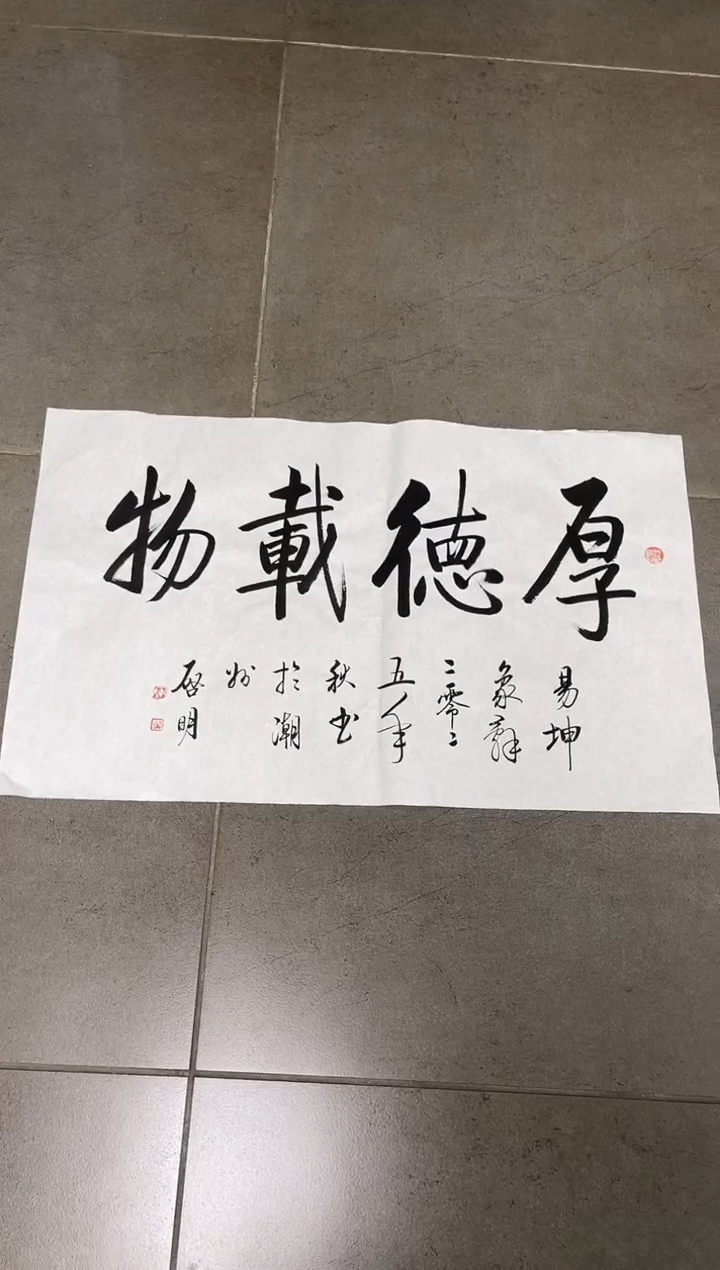 厚德載物
易坤
象辭
二零二
五年
秋书
於潮
州
启明